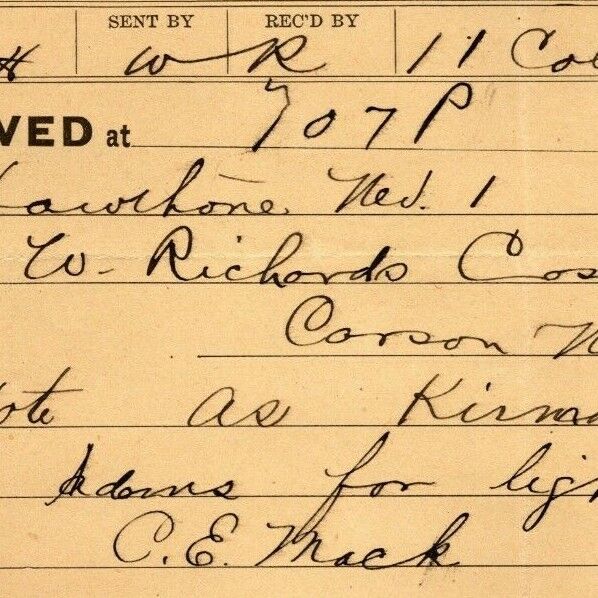 SENT BY REC'D BY
H W R 11 Col
VED at 707 P
Hawthorne, Nev. 1
W- Richards Cos
Carson N
ote as Kirma
Adams for lig
C.E. Mack